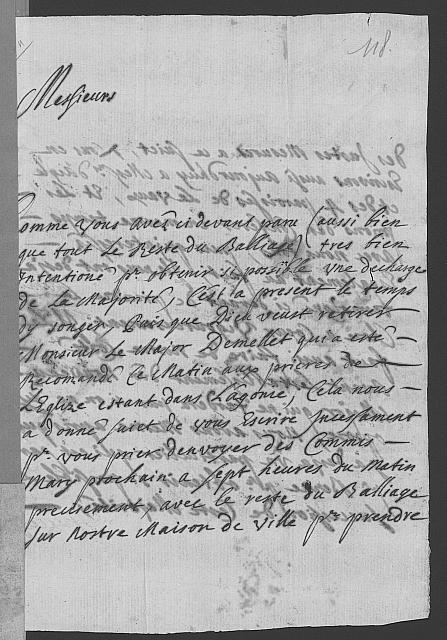 118.
Messieurs
Comme vous avez ci devant paru (aussi bien
que tout le Reste du Balliage) tres bien
intentioné pr obtenir si possible une decharge
de la Majorité, C'est a present le temps
dy songer Puis que Dieu veust retirer
Monsieur Le Major Demellet qui a esté
Recomandé Ce Matin aux prieres de
L'Eglize estant dans L'agonie, Cela nous
a donné sujet de vous Escrire Incessament
pr vous prier denvoyer des Commis
Mary prochain a sept heures du Matin
precisement, avec le reste du Balliage
sur Nostre Maison de Ville pr prendre